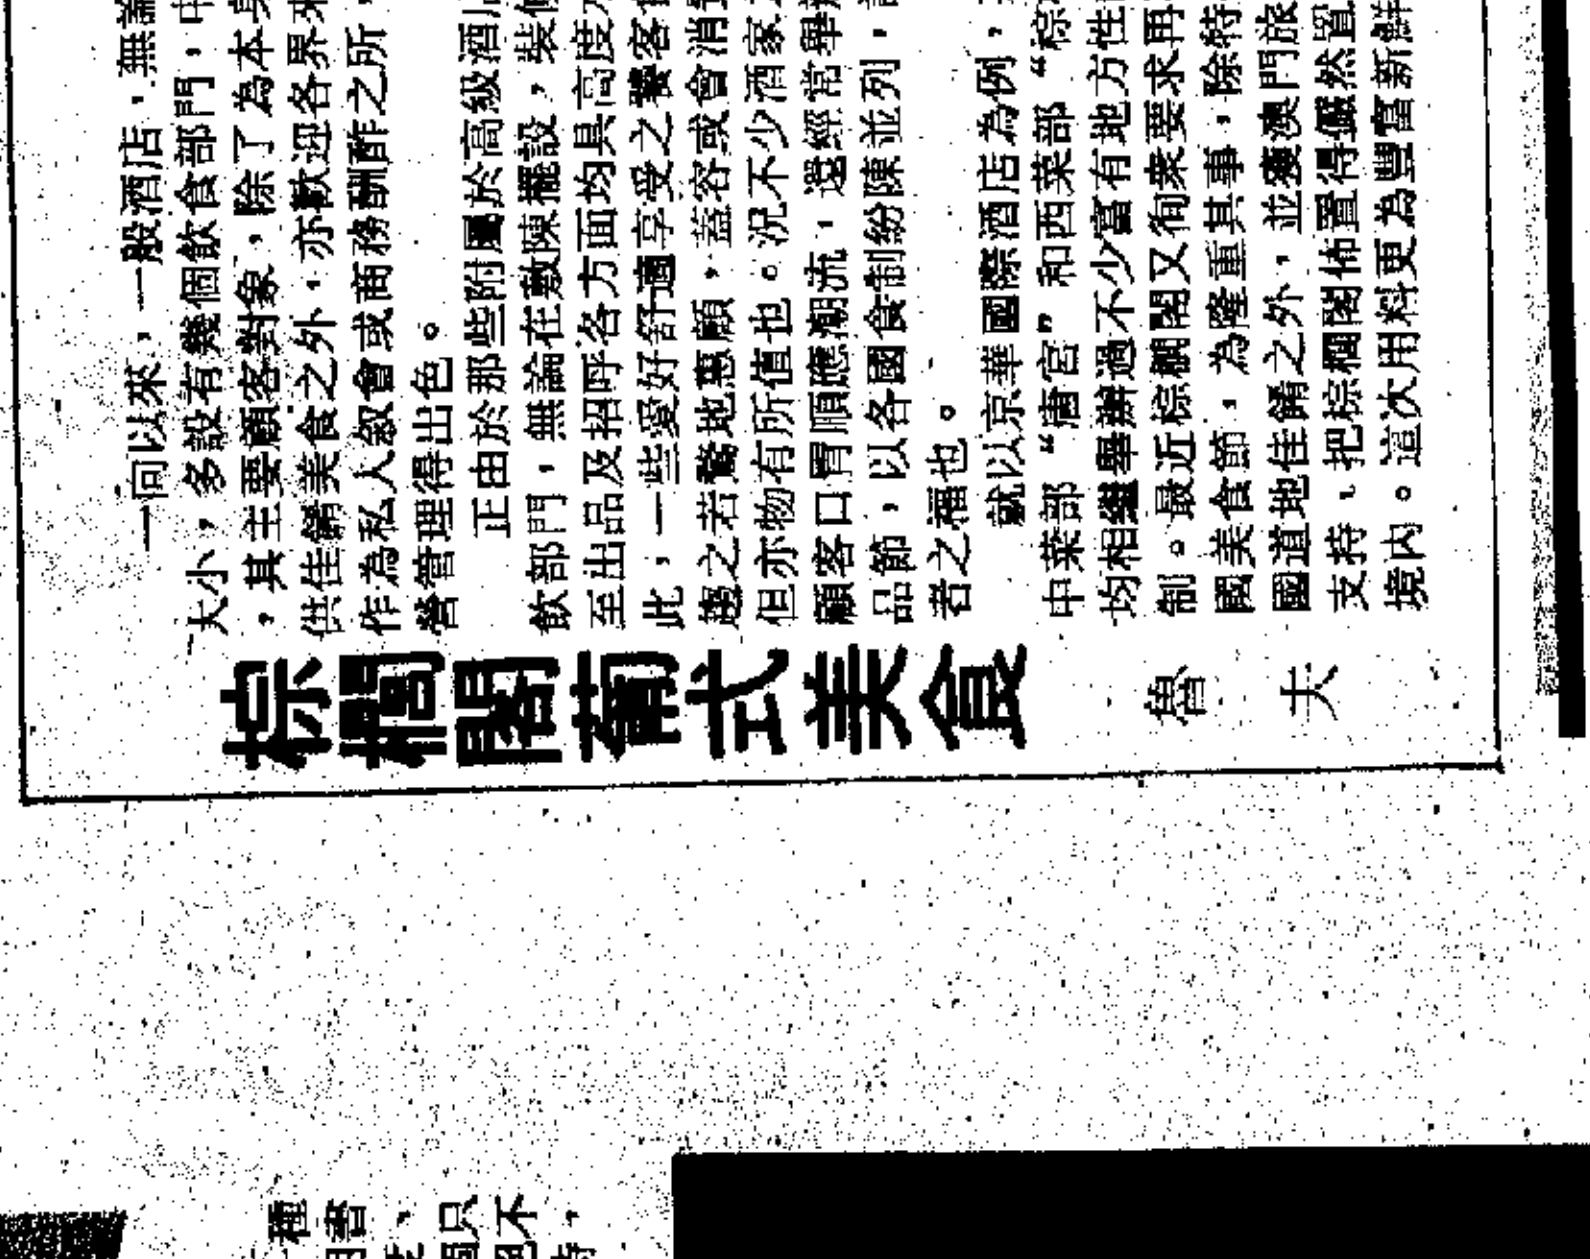 棕櫚閣葡式美食
魯夫
一向以來，一般酒店，無論
大小，多設有幾個飲食部門，中
，其主要顧客對象，除了為本身
供佳餚美食之外，亦歡迎各界來
作為私人叙會或商務酬酢之所，
營管理得出色。
正由於那些附屬於高級酒店
飲部門，無論在敷陳擺設，裝修
至出品及招呼各方面均具高度水
此，一些愛好舒適享受之饕客
趨之若鶩地惠顧，蓋容或會消
但亦物有所值也。況不少酒家
顧客口胃順應潮流，還經常舉辦
品節，以各國食制紛陳並列，
者之福也。
就以京華國際酒店為例，
中菜部“唐宮”和西菜部“棕
均相繼舉辦過不少富有地方性
制。最近棕櫚閣又徇衆要求再
國美食節，為隆重其事，除特
國道地佳餚之外，並獲澳門旅
支持，把棕櫚閣佈置得儼然置
境內。這次用料更為豐富新鮮
種
書
只
不